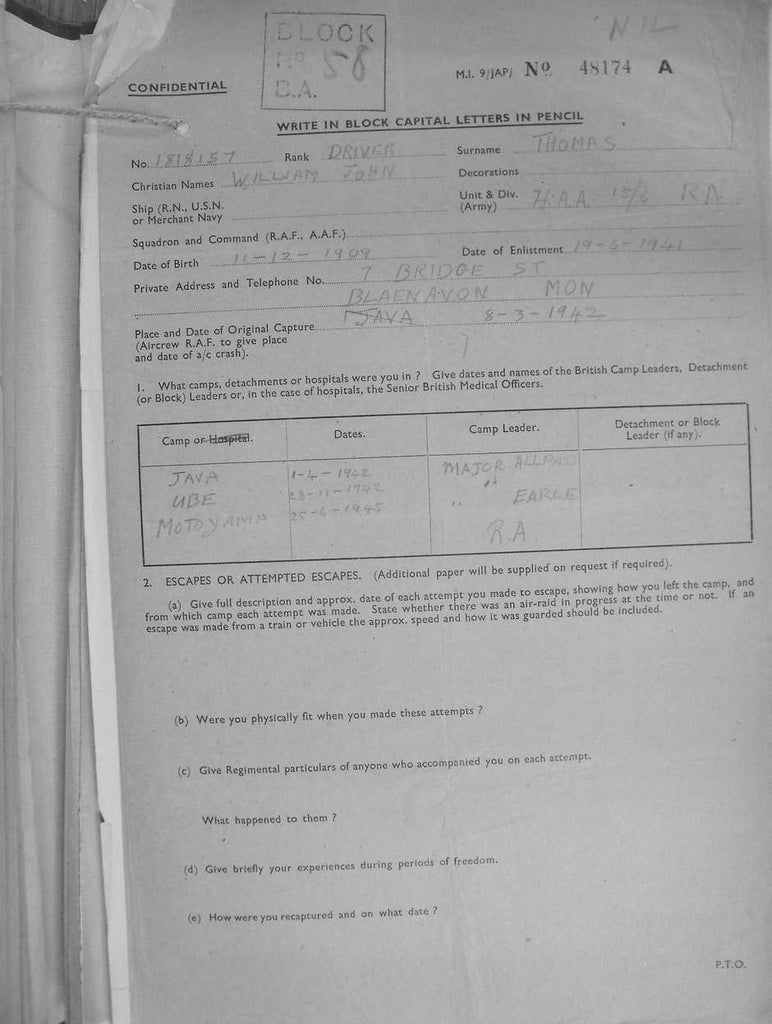 NIL
BLOCK
No 58
B.A.
M.I. 9/JAP/ No. 48174 A
CONFIDENTIAL
WRITE IN BLOCK CAPITAL LETTERS IN PENCIL
No. 1818157 Rank DRIVER Surname THOMAS
Christian Names WILLIAM JOHN Decorations
Ship (R.N., U.S.N. or Merchant Navy Unit & Div. (Army) H.A.A. 15/6 RA
Squadron and Command (R.A.F., A.A.F.)
Date of Birth 11-12-1909 Date of Enlistment 19-6-1941
Private Address and Telephone No. 7 BRIDGE ST
BLAENAVON MON
Place and Date of Original Capture JAVA 8-3-1942
(Aircrew R.A.F. to give place
and date of a/c crash).
1. What camps, detachments or hospitals were you in ? Give dates and names of the British Camp Leaders, Detachment
(or Block) Leaders or, in the case of hospitals, the Senior British Medical Officers.
Camp or Hospital. Dates. Camp Leader. Detachment or Block
Leader (if any).
JAVA 1-4-1942 MAJOR ALLPASS
UBE 28-11-1942 " EARLE
MOTOYAMA 25-6-1945 R.A.
2. ESCAPES OR ATTEMPTED ESCAPES. (Additional paper will be supplied on request if required).
(a) Give full description and approx. date of each attempt you made to escape, showing how you left the camp, and
from which camp each attempt was made. State whether there was an air-raid in progress at the time or not. If an
escape was made from a train or vehicle the approx. speed and how it was guarded should be included.
(b) Were you physically fit when you made these attempts ?
(c) Give Regimental particulars of anyone who accompanied you on each attempt.
What happened to them ?
(d) Give briefly your experiences during periods of freedom.
(e) How were you recaptured and on what date ?
P.T.O.